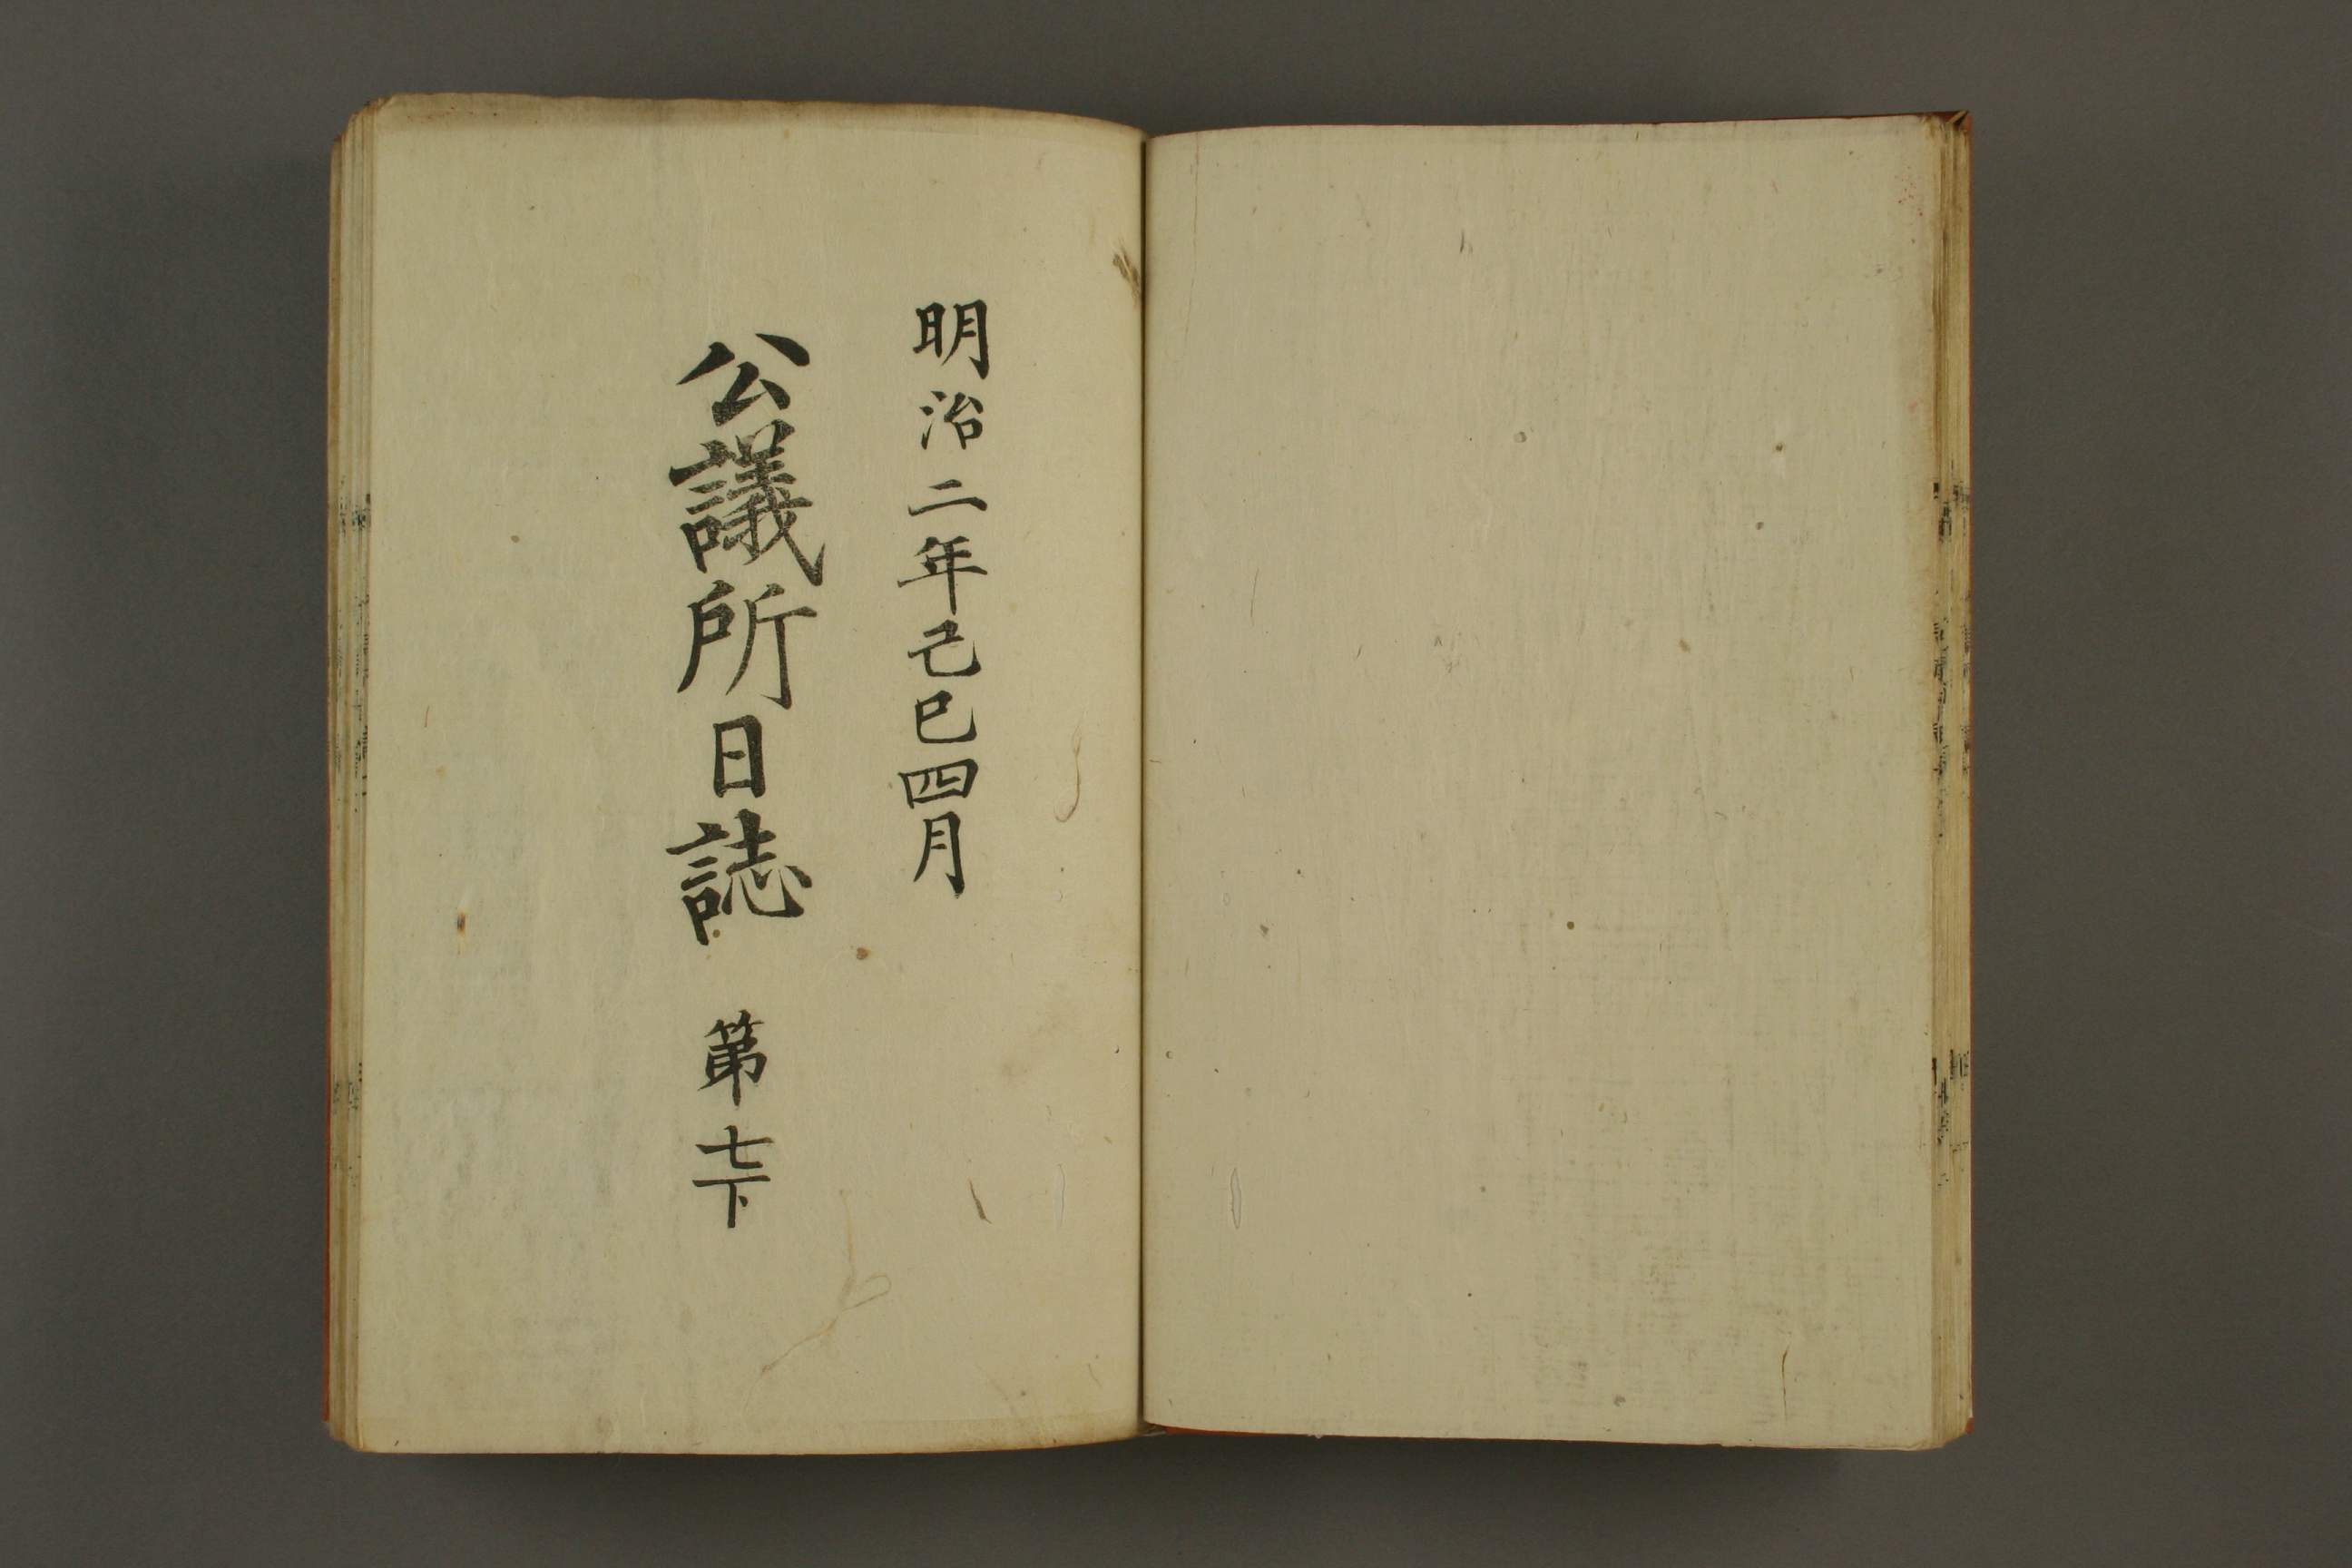 明治二年己巳四月
公議所日誌 第七下